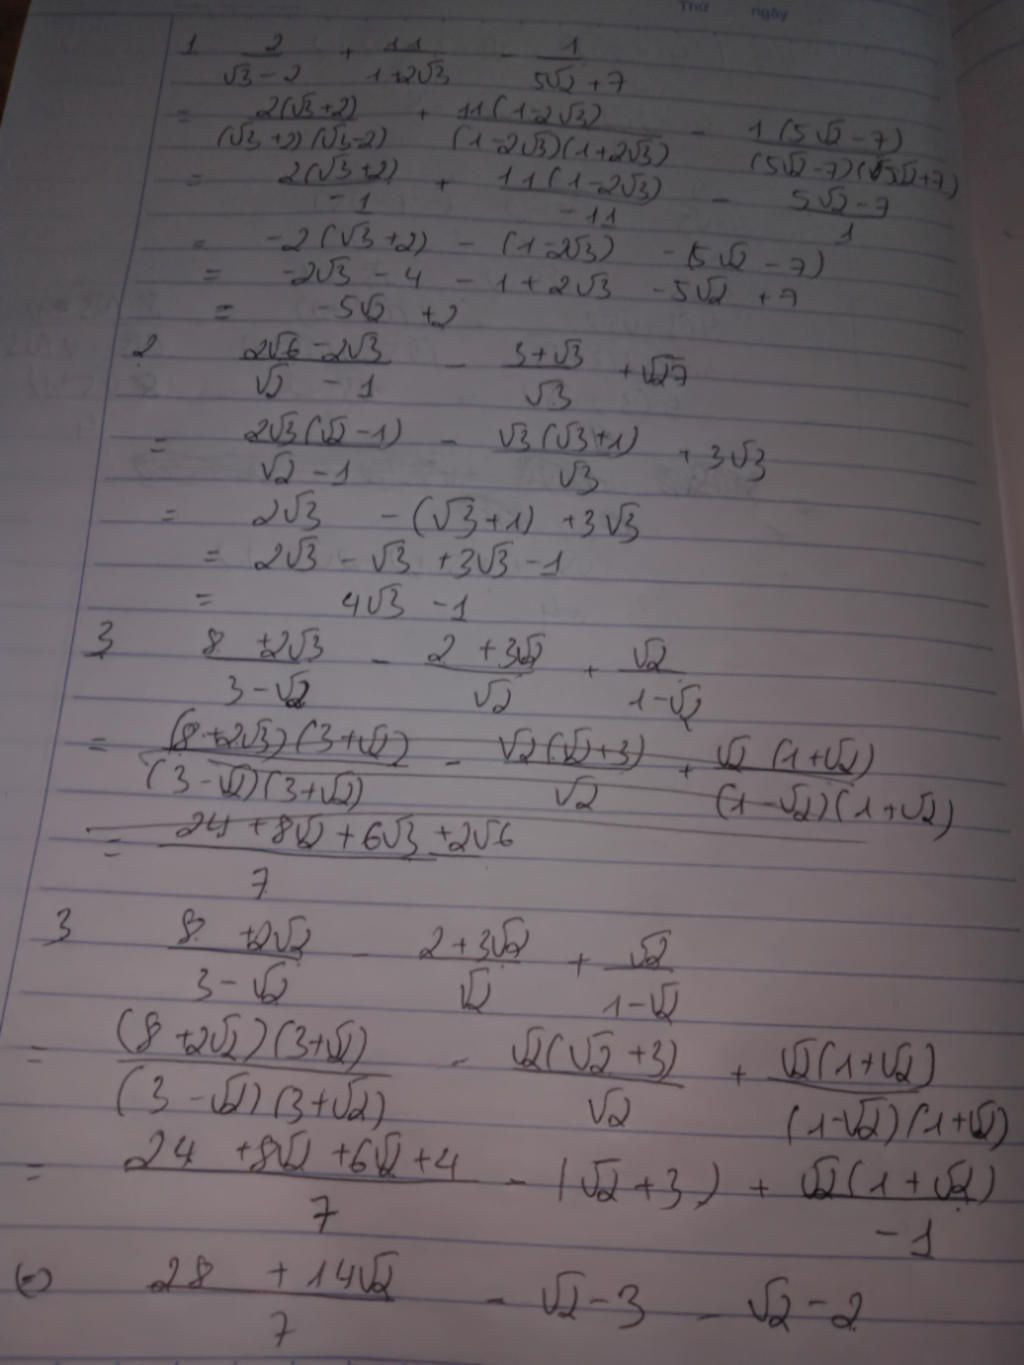 Thứ ngày
1 2/(√3-2) + 11/(1+2√3) - 1/(5√2+7)
= 2(√3+2)/((√3+2)(√3-2)) + 11(1-2√3)/((1-2√3)(1+2√3)) - 1(5√2-7)/((5√2-7)(5√2+7))
= 2(√3+2)/-1 + 11(1-2√3)/-11 - (5√2-7)/1
= -2(√3+2) - (1-2√3) - (5√2-7)
= -2√3 - 4 - 1 + 2√3 - 5√2 + 7
= -5√2 + 2
2 (2√6-2√3)/(√2-1) - (3+√3)/√3 + √27
= 2√3(√2-1)/(√2-1) - √3(√3+1)/√3 + 3√3
= 2√3 - (√3+1) + 3√3
= 2√3 - √3 + 3√3 - 1
= 4√3 - 1
3 (8+2√3)/(3-√2) - (2+3√2)/√2 + √2/(1-√2)
= (8+2√3)(3+√2)/((3-√2)(3+√2)) - √2(√2+3)/√2 + √2(1+√2)/((1-√2)(1+√2))
= (24+8√2+6√3+2√6)/7
3 (8+2√2)/(3-√2) - (2+3√2)/√2 + √2/(1-√2)
= (8+2√2)(3+√2)/((3-√2)(3+√2)) - √2(√2+3)/√2 + √2(1+√2)/((1-√2)(1+√2))
= (24+8√2+6√2+4)/7 - (√2+3) + √2(1+√2)/-1
(=) (28+14√2)/7 - √2-3 - √2-2